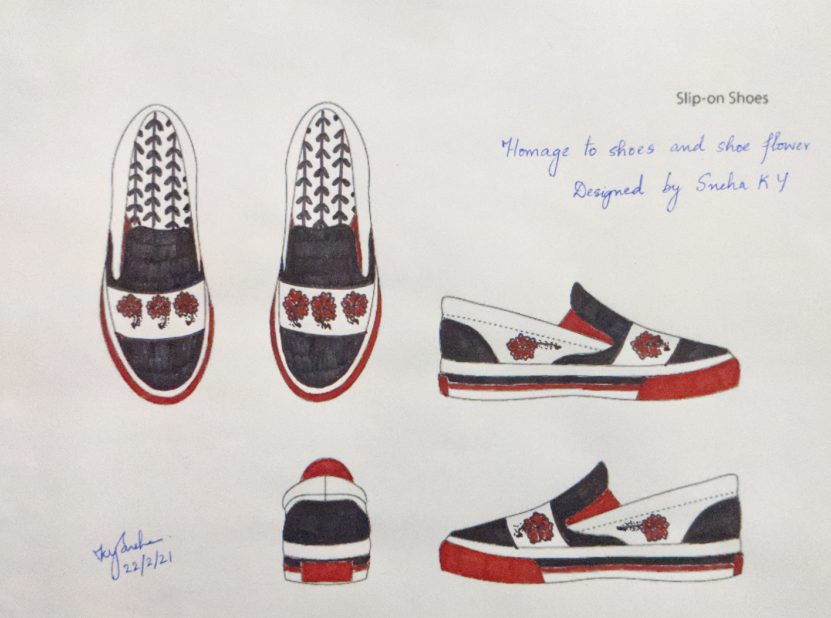 Slip-on Shoes
Homage to shoes and shoe flower
Designed by Sneha K Y
22/2/21